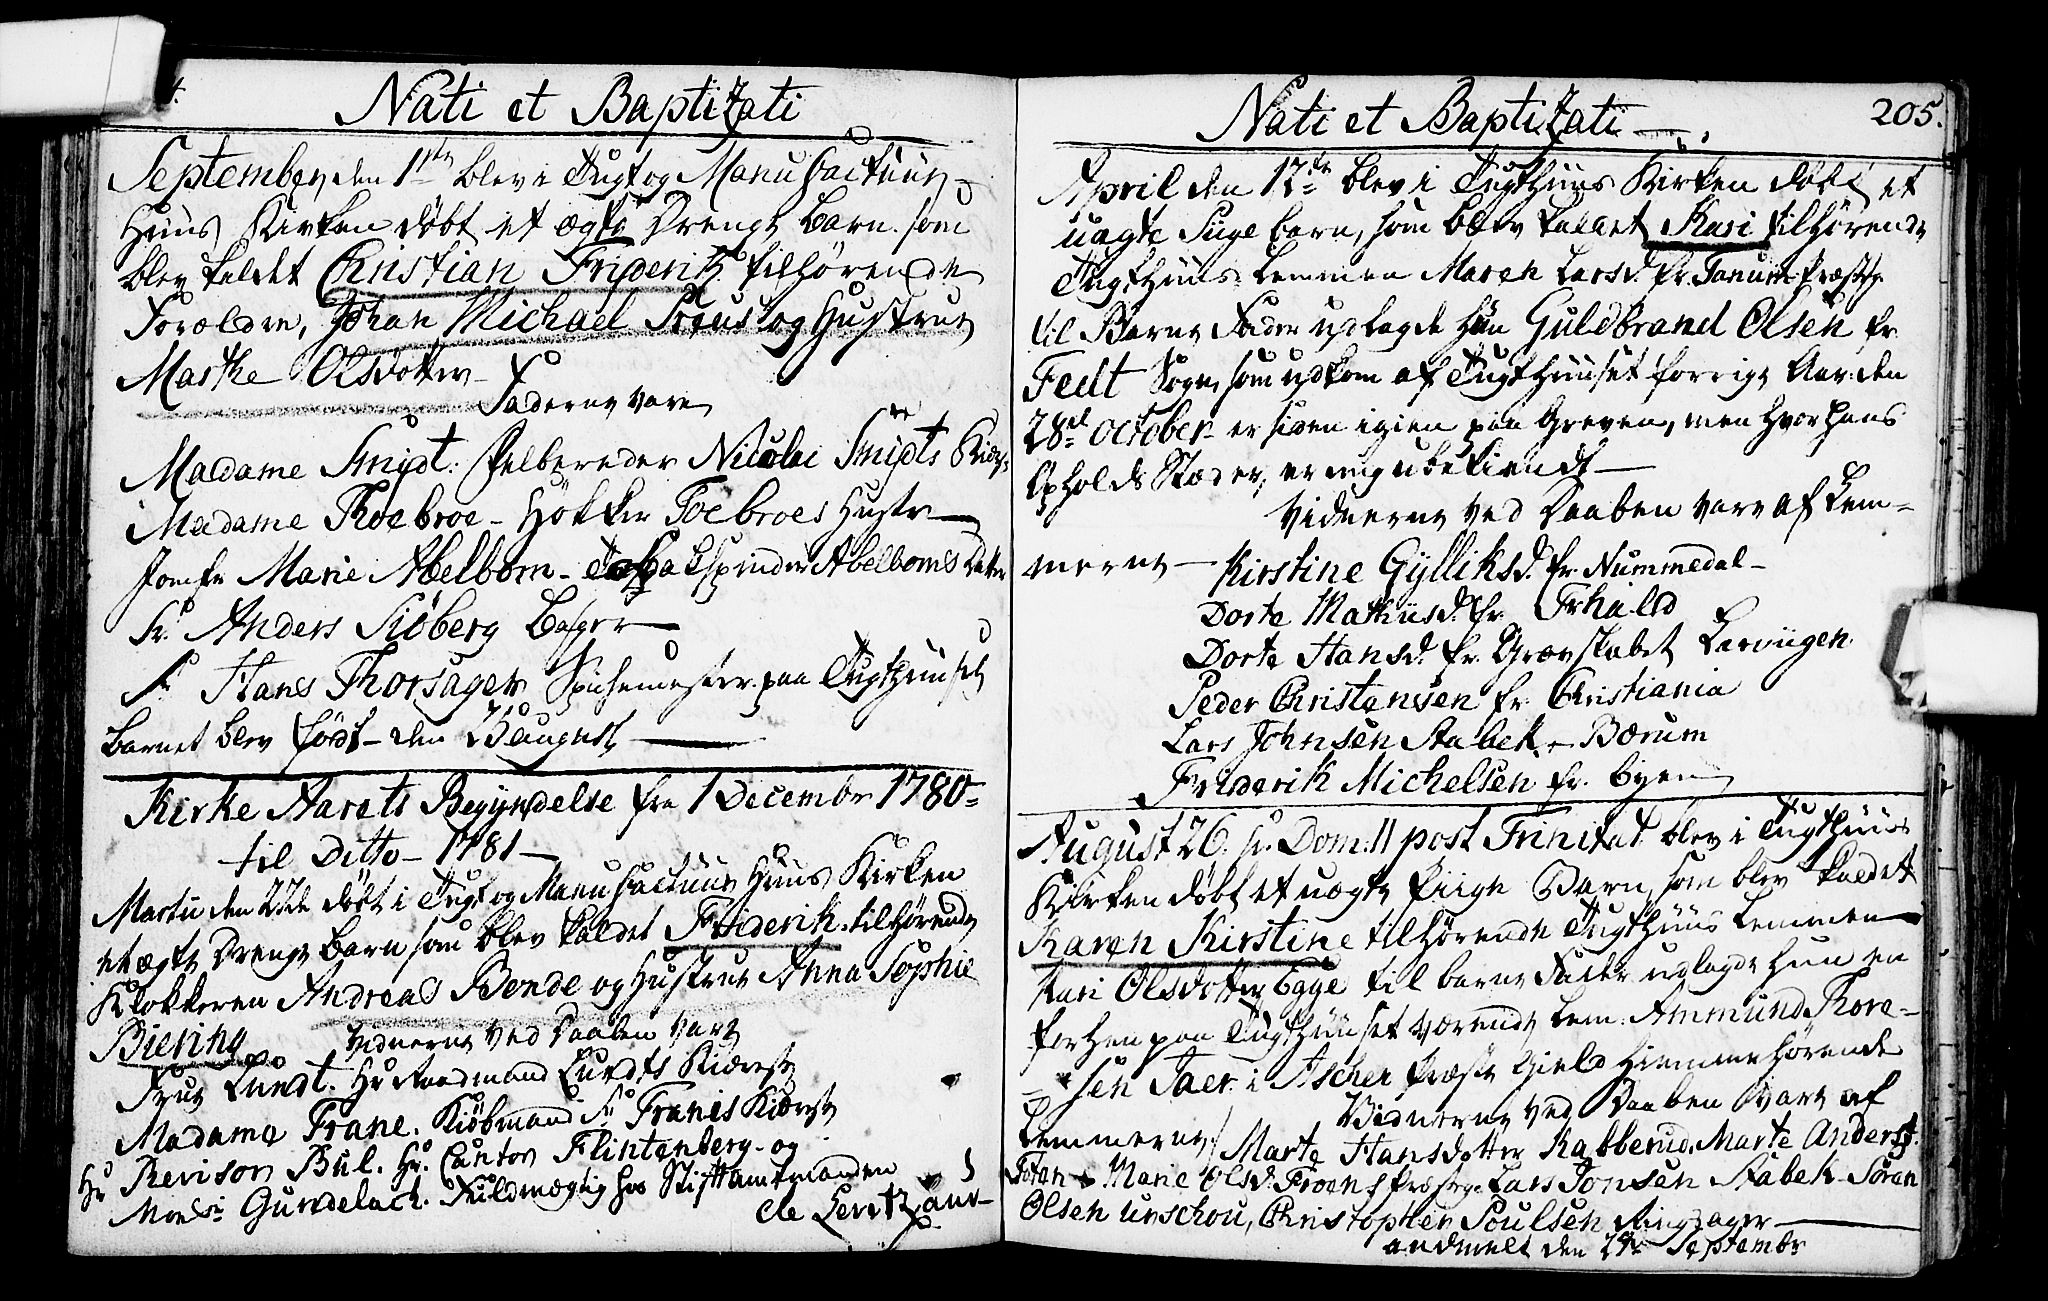 Nati et Baptizati
September den 1ste blev i Tugt og Manufactuur
Huus Kirken döbt et ægte Drenge barn som
blev kaldet Christian Friderik tilhörende
Forældre, Johan Michael og Hustrue
Marthe Olsdotter
Faderne vare
Madame Smidt: Felbereder Nicolai Smidts Kier:
Madame Thoebroe - Hökker Toebroes Hustr
Jomfr Marie Abelborn - Tobakspinder Abelborns Datter
Sr. Anders Siöberg bager
Sr Hans Thorsager Spisemester paa Tugthuuset
barnet blev födt den august
Kirke Aarets Begyndelse fra 1 December 1780
til Ditto - 1781
Martii den 22de döbt i Tugt og Manufactuur Huus Kirken
et ægte Drenge barn som blev kaldet Friderik tilhörende
Klokkeren Andreas Bende og Hustrue Anna Sophie
Biering
Vidnerne ved Daaben vare
Frue Lundt. Hr Raadmand Lundts Kiæreste
Madame Frane. Kiöbmand Sr Franis Kiæreste
Hr Revisor Bul. Hr. Cantor Flintenberg og
Monsr Gundelach. Fuldmægtig hos Stiftamtmanden
de Levetzau
205.
Nati et Baptizati
April den 17te blev i Tugthuus Kirken döbt et
uægte Pige barn, som blev kaldet Kari tilhörende
Tugthuus Lemmen Maren Larsd. fr. Tanum Præsteg.
til Barne Fader udlagde hun Guldbrand Olsen fr.
Fedt Sogn, som udkom af Tugthuuset forrige Aar den
28de October er siden igien paa Greven, men hvor hans
Opholds Stæd er, er mig ubekiendt
Vidnerne ved Daaben vare af Lem-
merne - Kirstine Gylliksd. fr. Nummedal
Dorte Mathiisd. fr.
Dorte Hansd. fr. Grevskabet Larviigen
Peder Christensen fr. Christiania
Lars Johnsen Stabek - Bærum
Friderik Michelsen fr. byen
August 26. p. Dom. 11 post Trinitat. blev i Tugthuus
Kirken döbt et uægte Piige Barn, som blev kaldet
Karen Kirstine tilhörende Tugthuus Lemmen
Kari Olsdotter Egge til barne Fader udlagde hun en
forhen paa Tugthuuset værende Lem. Ammund Thore-
sen Taer i Ascher Præste Gield hiemmehörende
Vidnerne ved Daaben vare af
Lemmerne / Marte Hansdotter Rabberud. Marte Andersd.
Toten - Marie Olsd. Froens Præsteg. Lars Jonsen Stabek - Sören
Olsen Urschou, Christopher Poulsen Ringsager
andmelt den 29de September